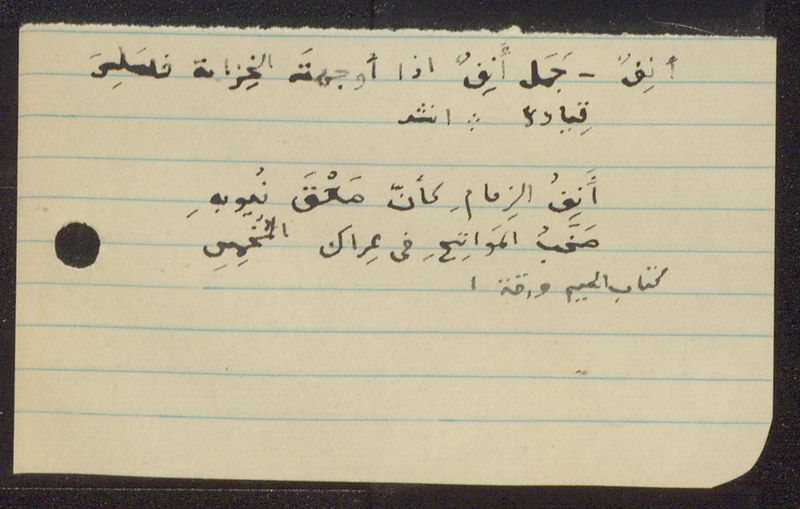 أَنِفٌ - جَمَل أَنِفٌ اذا أوجعته الخِزامة فسَلِسَ
قِيَاده : انشد
أَنِفُ الزِمامِ كأنّ صَعْقَ نُيوبِهِ
صَخَبُ المَوَاتِحِ في عِراك المُخْمِسِ
كتاب الجيم ورقة ١